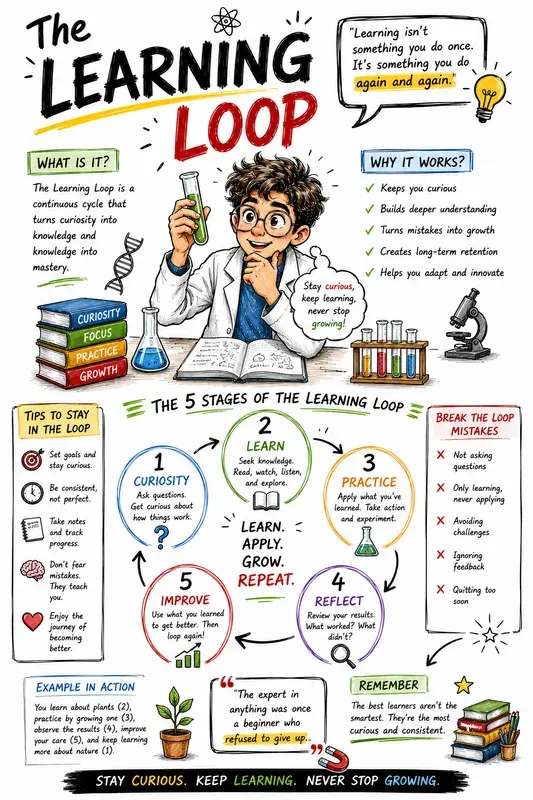 The
LEARNING
LOOP
"Learning isn't
something you do once.
It's something you do
again and again."
WHAT IS IT?
The Learning Loop is a
continuous cycle that
turns curiosity into
knowledge and
knowledge into
mastery.
WHY IT WORKS?
✓ Keeps you curious
✓ Builds deeper understanding
✓ Turns mistakes into growth
✓ Creates long-term retention
✓ Helps you adapt and innovate
Stay curious,
keep learning,
never stop
growing!
CURIOSITY
FOCUS
PRACTICE
GROWTH
THE 5 STAGES OF THE LEARNING LOOP
TIPS TO STAY
IN THE LOOP
Set goals and
stay curious.
Be consistent,
not perfect.
Take notes
and track
progress.
Don't fear
mistakes.
They teach
you.
Enjoy the
journey of
becoming
better.
1
CURIOSITY
Ask questions.
Get curious about
how things work.
?
2
LEARN
Seek knowledge.
Read, watch, listen,
and explore.
3
PRACTICE
Apply what you've
learned. Take action
and experiment.
4
REFLECT
Review your results.
What worked? What
didn't?
5
IMPROVE
Use what you learned
to get better. Then
loop again!
LEARN.
APPLY.
GROW.
REPEAT.
BREAK THE LOOP
MISTAKES
X Not asking
questions
X Only learning,
never applying
X Avoiding
challenges
X Ignoring
feedback
X Quitting too
soon
EXAMPLE IN ACTION
You learn about plants (2),
practice by growing one (3),
observe the results (4), improve
your care (5), and keep learning
more about nature (1).
"The expert in
anything was once
a beginner who
refused to give up."
REMEMBER
The best learners aren't the
smartest. They're the most
curious and consistent.
STAY CURIOUS. KEEP LEARNING. NEVER STOP GROWING.